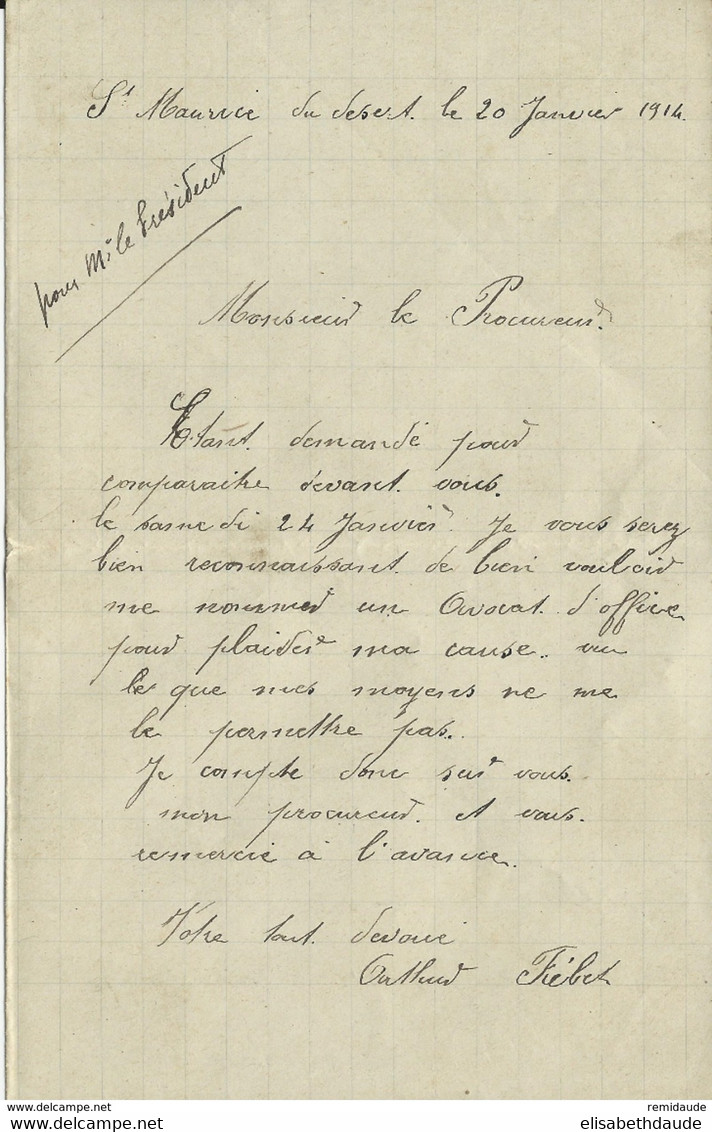 St Maurice du desert. le 20 Janvier 1914.
pour Mr le Président
Monsieur le Procureur.
Etant. demandé pour
comparaitre devant. vous.
le samedi 24 Janvier. Je vous serez
bien reconnaissant. de bien vouloir
me nommer un Avocat. d'office
pour plaider ma cause. vu
le que mes moyens ne me
le permettre pas.
Je compte donc sur vous.
mon procureur. et vous.
remercie à l'avance.
Votre tout. devoué
Arthur Fébet
remidaude
elisabethdaude